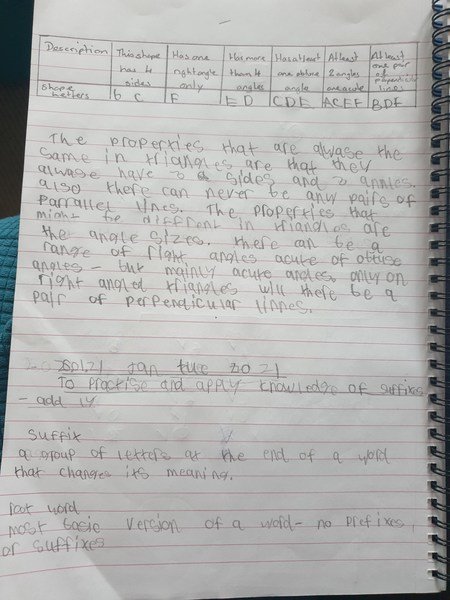 Description This shape has 4 sides Has one right angle only Has more than 4 angles Has at least one obtuse angle At least 2 angles are acute At least one pair of perpendicular lines
shape letters B C F E D C D E A C E F B D F
The properties that are alwase the
same in triangles are that they
alwase have 3 sides and 3 angles.
also there can never be any pairs of
parrallel lines. The properties that
might be diffrent in triangles are
the angle sizes. there can be a
range of right angles acute of obtuse
angles - but mainly acute angles. only on
right angled triangles will there be a
pair of perpendicular linnes.
Jan tue 20 21
To practise and apply knowledge of suffixes
- add ly
suffix
a group of letters at the end of a word
that changes its meaning.
root word
most basic version of a word - no prefixes
or suffixes